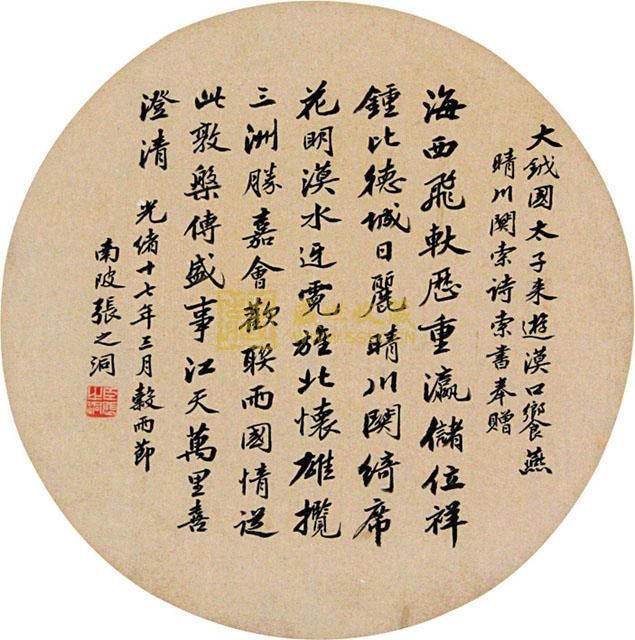 大鉞國太子来遊漢口饗燕
晴川閣索诗索書奉贈
海西飛軑歷重瀛儲位祥
鍾比德城日麗晴川開綺席
花明漢水迓霓旌北懷雄攬
三洲勝嘉會歡聯兩國情從
此敦槃傳盛事江天萬里喜
澄清 光緒十七年三月穀雨節
南陂張之洞